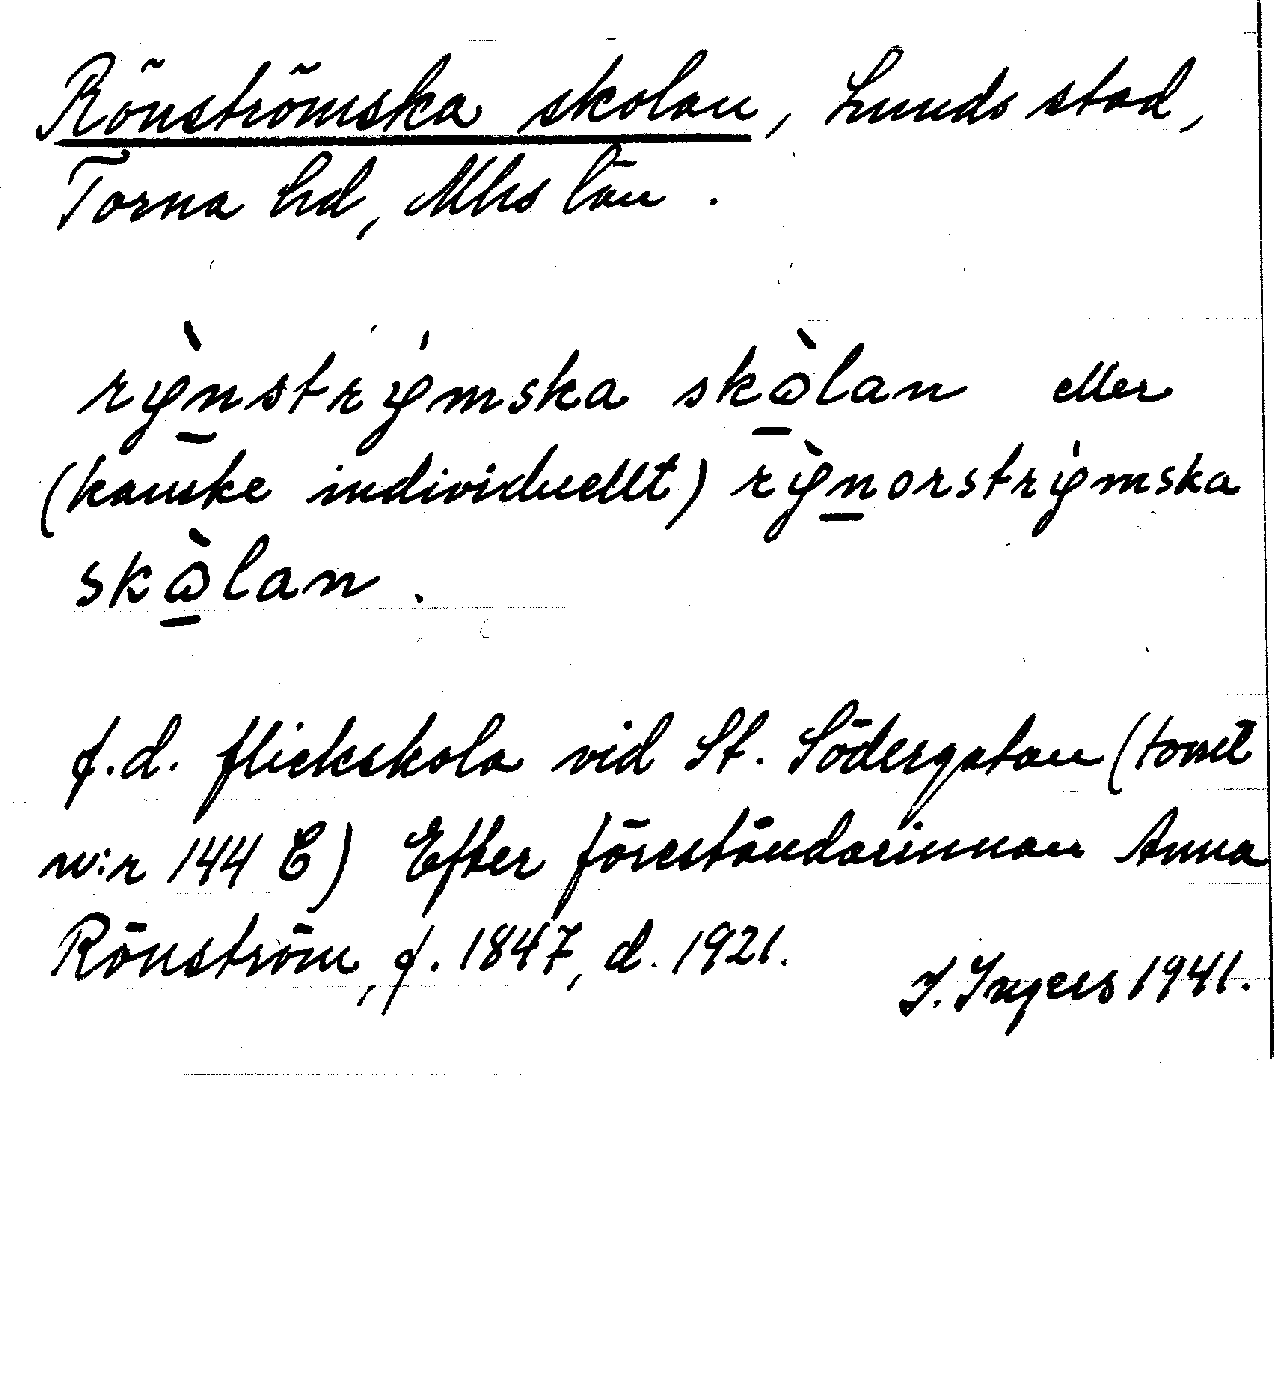 Rönströmska skolan, Lunds stad,
Torna hd, Mhs län.
rỳnstrýmska skòlan eller
(kanske individuellt) rỳnorstrýmska
skòlan.
f.d. flickskola vid St. Södergatan (tomt
n:r 144 C) Efter föreståndarinnan Anna
Rönström, f. 1847, d. 1921.
I. Ingers 1941.